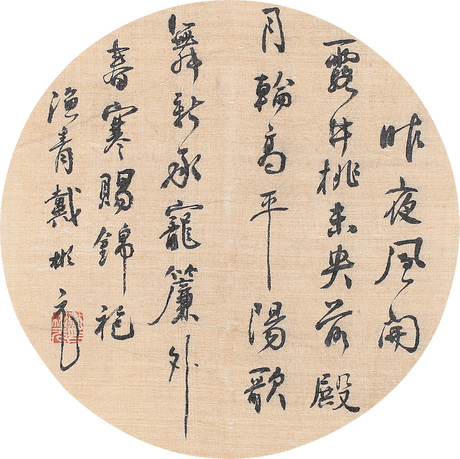 昨夜風開
露井桃未央前殿
月輪高平陽歌
舞新承寵簾外
春寒賜錦袍
漁青戴彬元